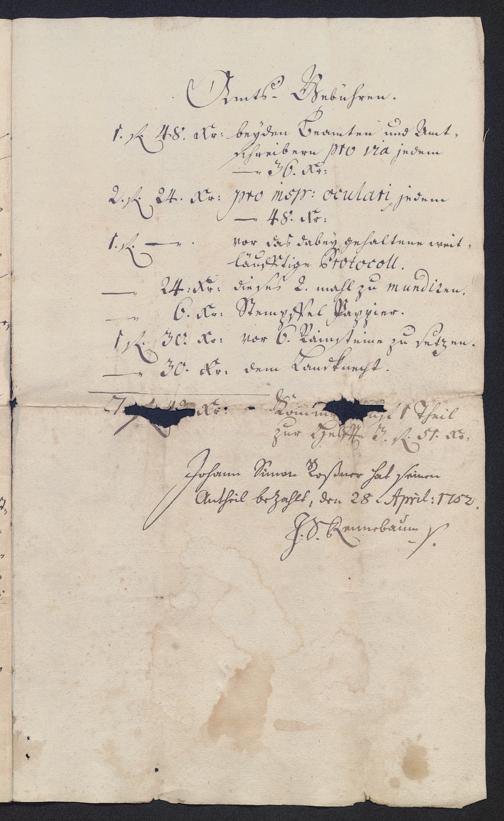 Amts-Gebühren.
1. fl. 48. Kr: beyden Beamten und Amt-
schreibern pro via jedem
— 36. Kr:
2. fl. 24. Kr: pro insp: oculari, jedem
— 48. Kr:
1. fl. — . vor das dabey gehaltene weit-
läufftige Protocoll.
— 24. Kr: dieses 2. mahl zu mundiren.
— 6. Kr: Stempffel Pappier.
1. fl. 30. Kr: vor 6. Rainsteine zu setzen.
— 30. Kr: dem Landknecht.
7. Kr: 1 Theil
zur Helfft 3. fl. 51. Kr.
Johann Simon Roßner hat seinen
Antheil bezahlt, den 28. April: 1752.
J. S. Rennebaum